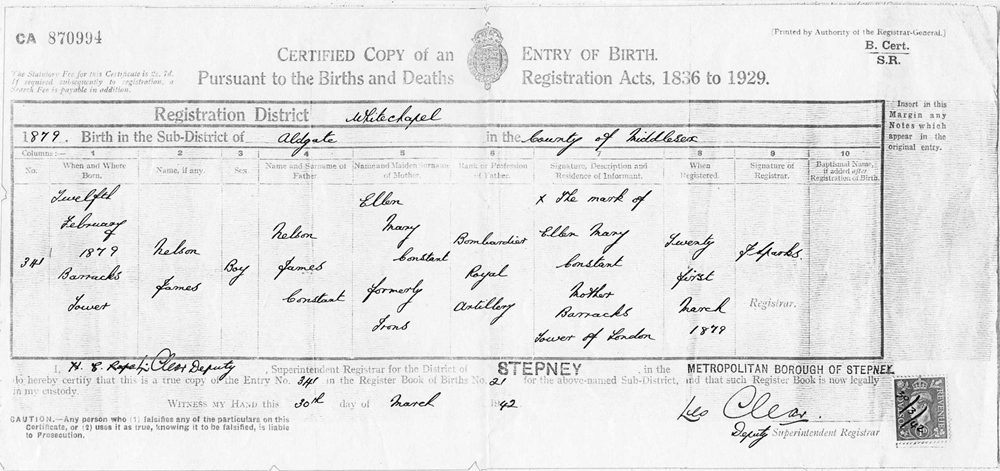 CA 870994
[Printed by Authority of the Registrar-General.]
B. Cert.
S.R.
CERTIFIED COPY of an ENTRY OF BIRTH.
Pursuant to the Births and Deaths Registration Acts, 1836 to 1929.
The Statutory Fee for this Certificate is 2s. 7d.
If required subsequently to registration, a
Search Fee is payable in addition.
Registration District Whitechapel
1879. Birth in the Sub-District of Aldgate in the County of Middlesex
Insert in this
Margin any
Notes which
appear in the
original entry.
Columns:— 1 2 3 4 5 6 7 8 9 10
No.
When and Where
Born.
Name, if any.
Sex.
Name and Surname of
Father
Name and Maiden Surname
of Mother.
Rank or Profession
of Father.
Signature, Description and
Residence of Informant.
When
Registered.
Signature of
Registrar.
Baptismal Name,
if added after
Registration of Birth.
341
Twelfth
February
1879
Barracks
Tower
Nelson
James
Boy
Nelson
James
Constant
Ellen
Mary
Constant
formerly
Irons
Bombardier
Royal
Artillery
x The mark of
Ellen Mary
Constant
Mother
Barracks
Tower of London
Twenty
first
March
1879
J Sparks.
Registrar.
I, H. E. Clear Deputy, Superintendent Registrar for the District of STEPNEY, in the METROPOLITAN BOROUGH OF STEPNEY
do hereby certify that this is a true copy of the Entry No. 341 in the Register Book of Births No. 21 for the above-named Sub-District, and that such Register Book is now legally
in my custody.
WITNESS MY HAND this 30th day of March 1942
CAUTION.—Any person who (1) falsifies any of the particulars on this
Certificate, or (2) uses it as true, knowing it to be falsified, is liable
to Prosecution.
Clear.
Deputy Superintendent Registrar
REVENUE